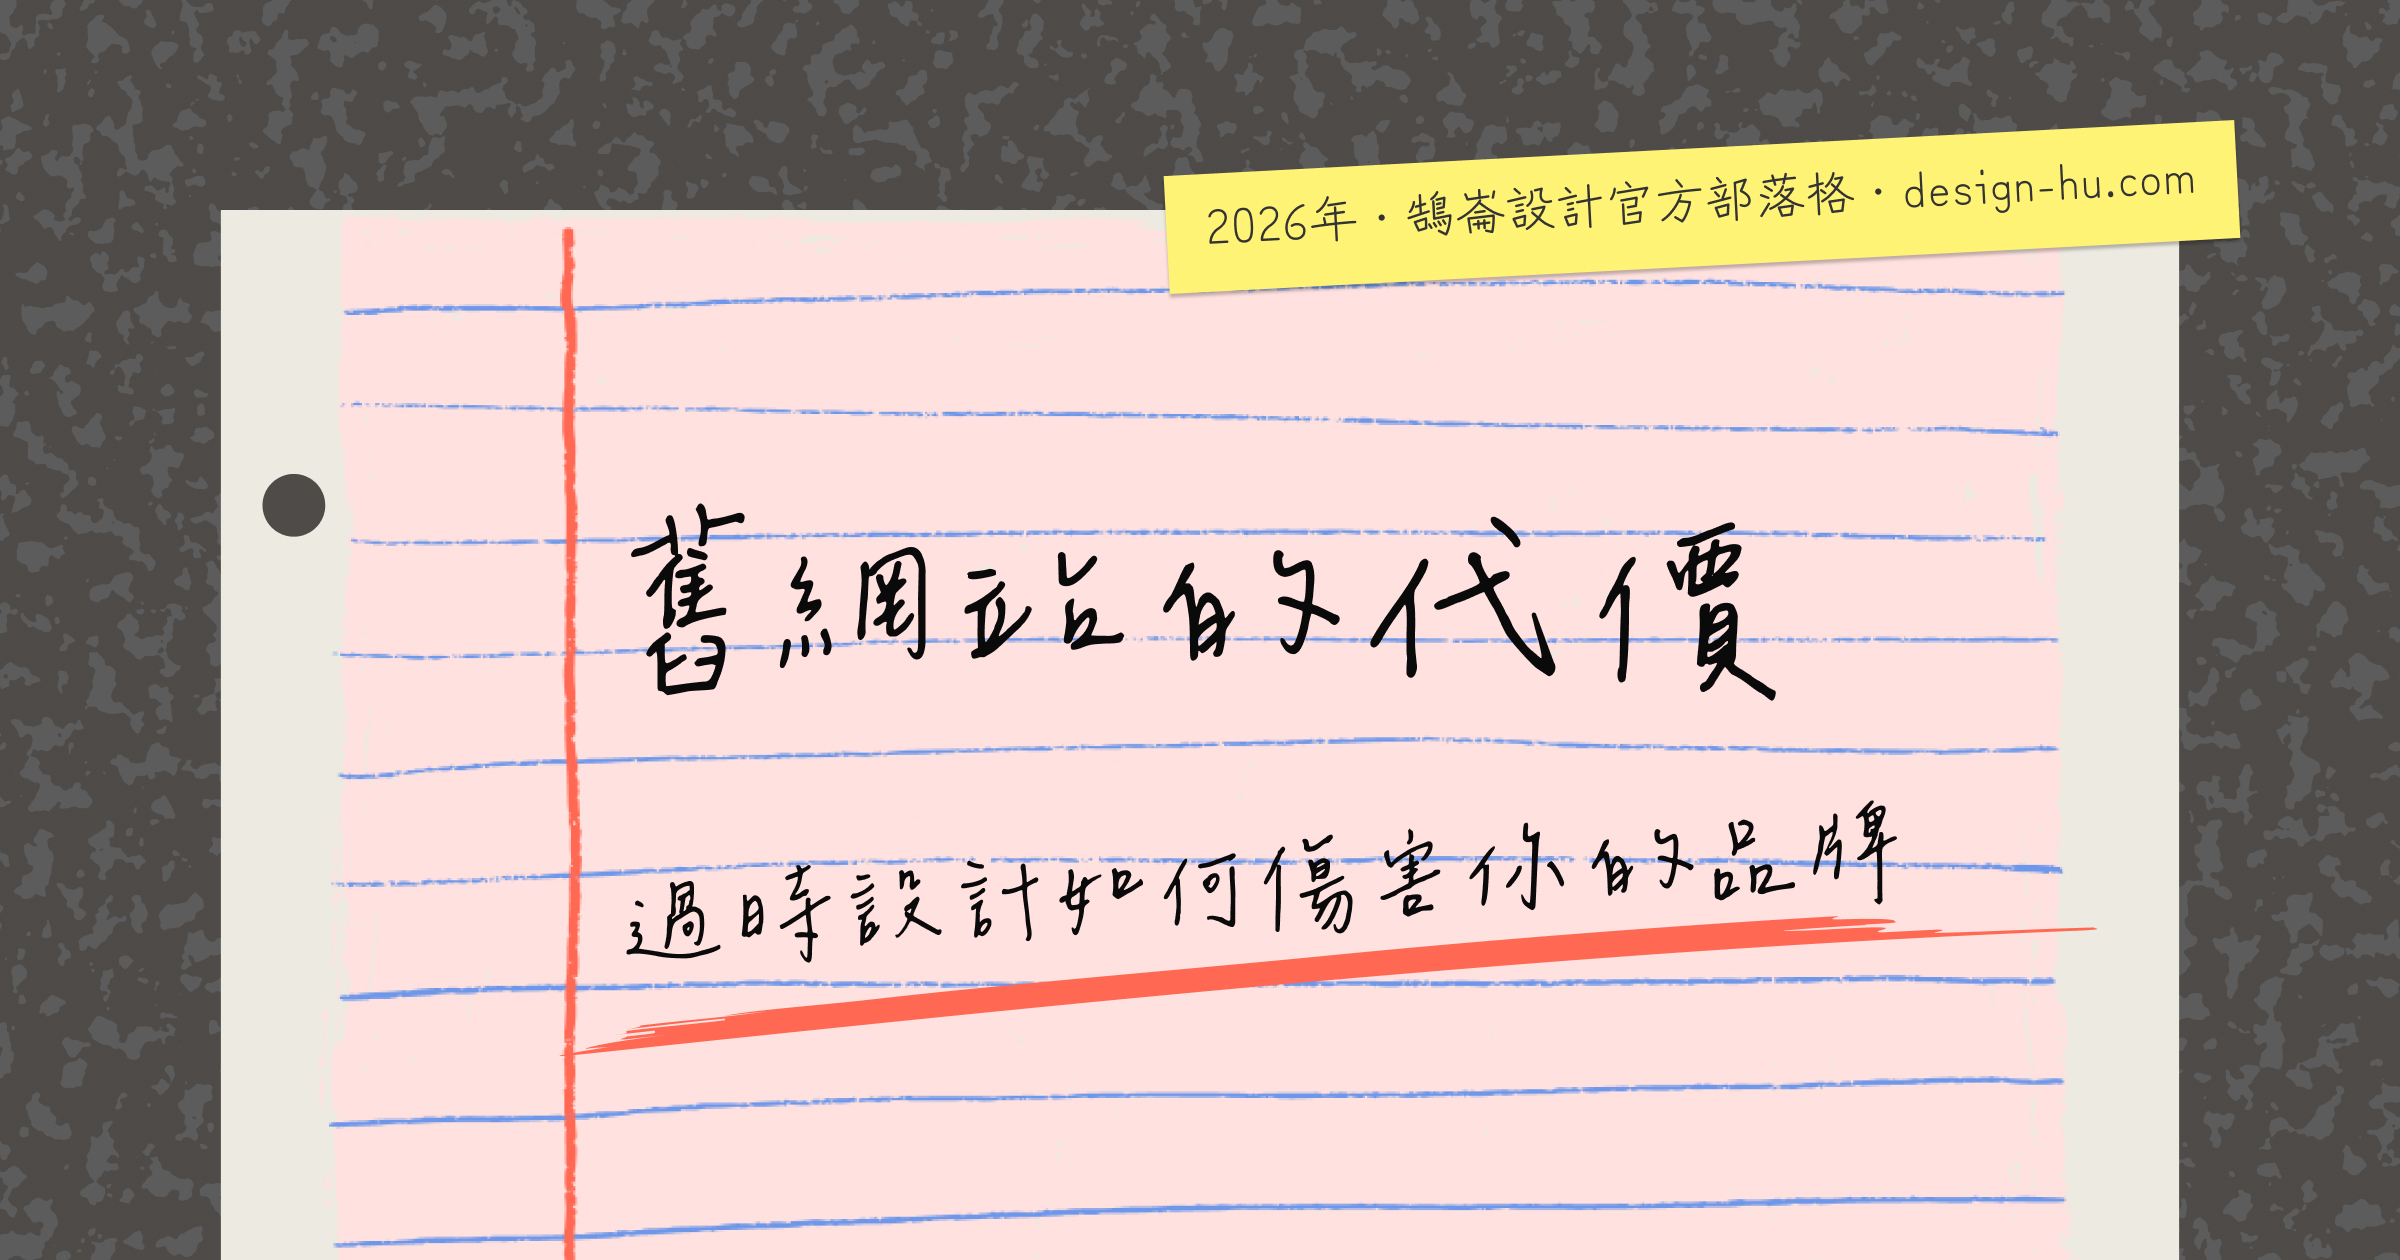 2026年・鵠崙設計官方部落格・design-hu.com
舊網站的代價
過時設計如何傷害你的品牌